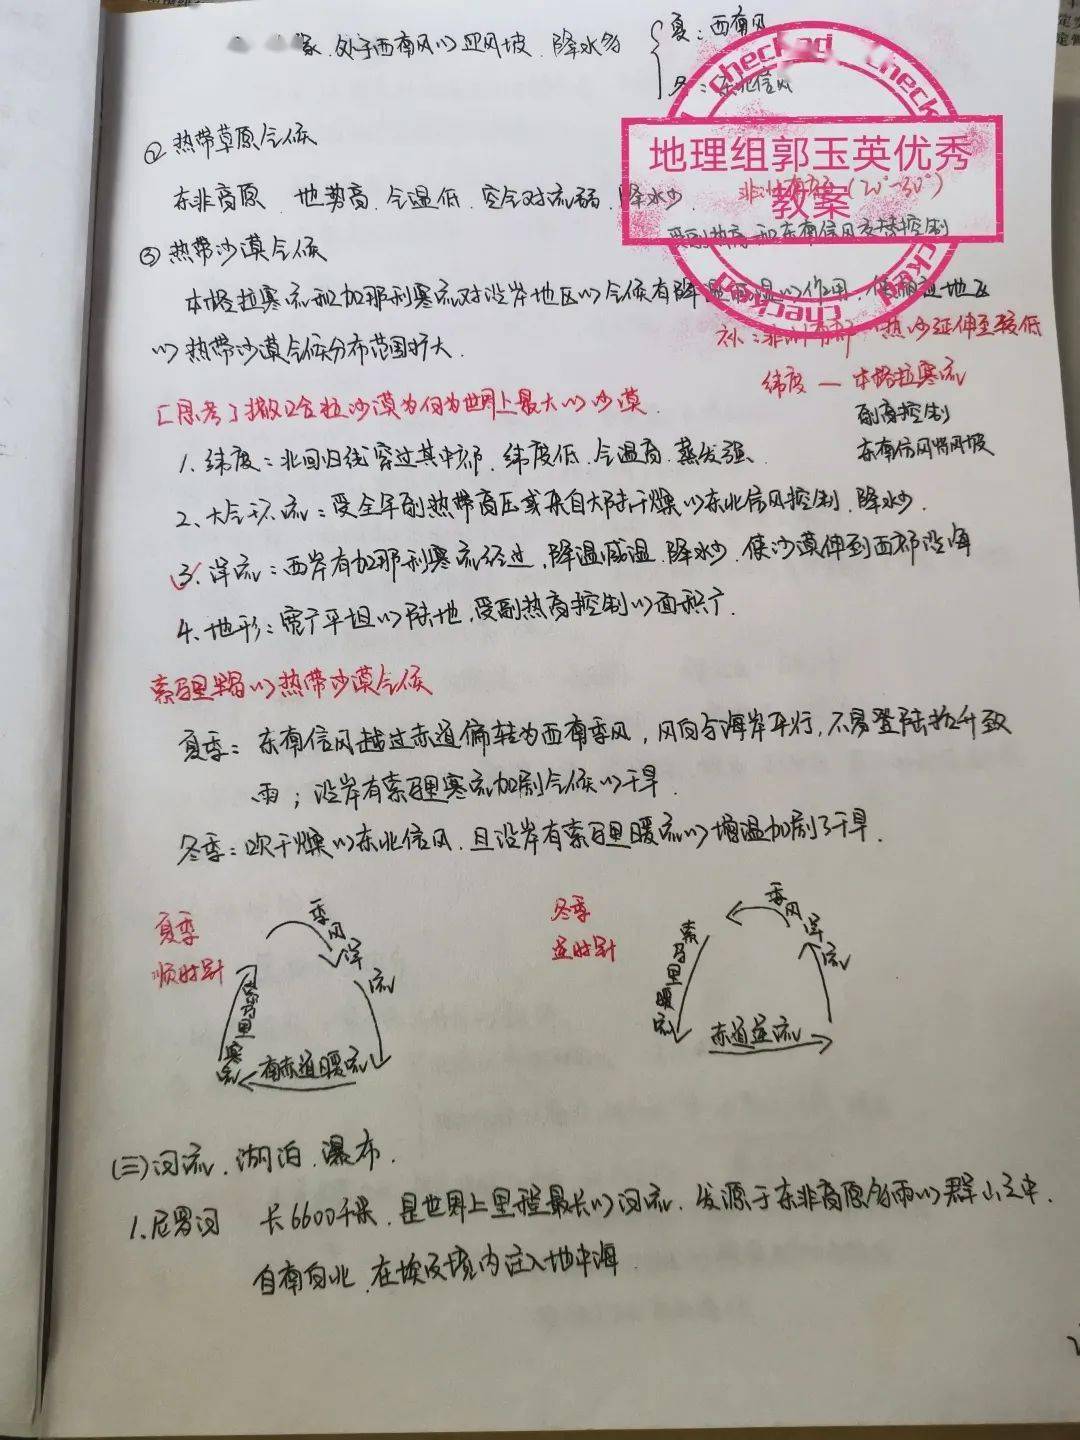 处于西南风的迎风坡、降水多
夏：西南风
冬：东北信风
checked
地理组郭玉英优秀
教案
② 热带草原气候
东非高原 地势高、气温低、空气对流弱、降水少
(20°-30°)
受副热高和东南信风交替控制
③ 热带沙漠气候
本格拉寒流和加那利寒流对沿岸地区的气候有降温减湿的作用，
地区
的热带沙漠气候分布范围扩大.
补：非洲西部 热沙延伸至较低
纬度 — 本格拉寒流
副高控制
东南信风背风坡
[思考] 撒哈拉沙漠为何为世界上最大的沙漠.
1、纬度：北回归线穿过其中部、纬度低、气温高、蒸发强、
2、大气环流：受全年副热带高压或来自大陆干燥的东北信风控制、降水少.
3、洋流：西岸有加那利寒流经过，降温减湿、降水少、使沙漠伸到西部沿海
4、地形：宽广平坦的陆地，受副热高控制的面积广.
索马里半岛的热带沙漠气候
夏季：东南信风越过赤道偏转为西南季风，风向与海岸平行，不易登陆抬升致
雨；沿岸有索马里寒流加剧气候的干旱.
冬季：吹干燥的东北信风、且沿岸有索马里暖流的增温加剧了干旱.
夏季
顺时针
季风洋流
索马里寒流
南赤道暖流
冬季
逆时针
季风洋流
索马里暖流
赤道逆流
(三)河流、湖泊、瀑布.
1、尼罗河 长6600千米、是世界上里程最长的河流、发源于东非高原多雨的群山之中.
自南向北、在埃及境内注入地中海